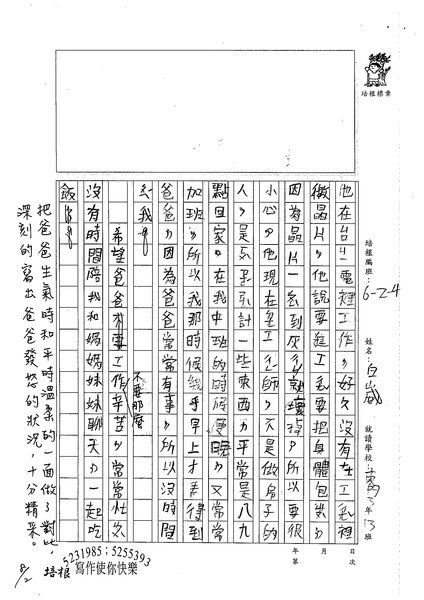 培根標章
培根編班：6-2-4 姓名： 就讀學校： 3年13班
年 月 日
第 次
他在台工電裡工作，好久沒有在工裡
做晶片，他說要進工要把身體包
因為晶片一到灰就壞掉，所以要很
小心，他現在是工師，不是做房子的
人，是計一些東西，平常是八九
點回家，在我中班的時候更晚，又常常
加班，所以我那時候幾乎早上才看得到
爸爸，因為爸爸常常有事，所以沒時間
我
希望爸爸不要工作那麼辛苦，常常
沒有時間陪我和媽媽妹妹聊天，一起吃
飯
把爸爸生氣時和平時溫柔的一面做了對比，
深刻的寫出爸爸發怒的狀況，十分精采。
培根 8/2
5231985；5255393
寫作使你快樂